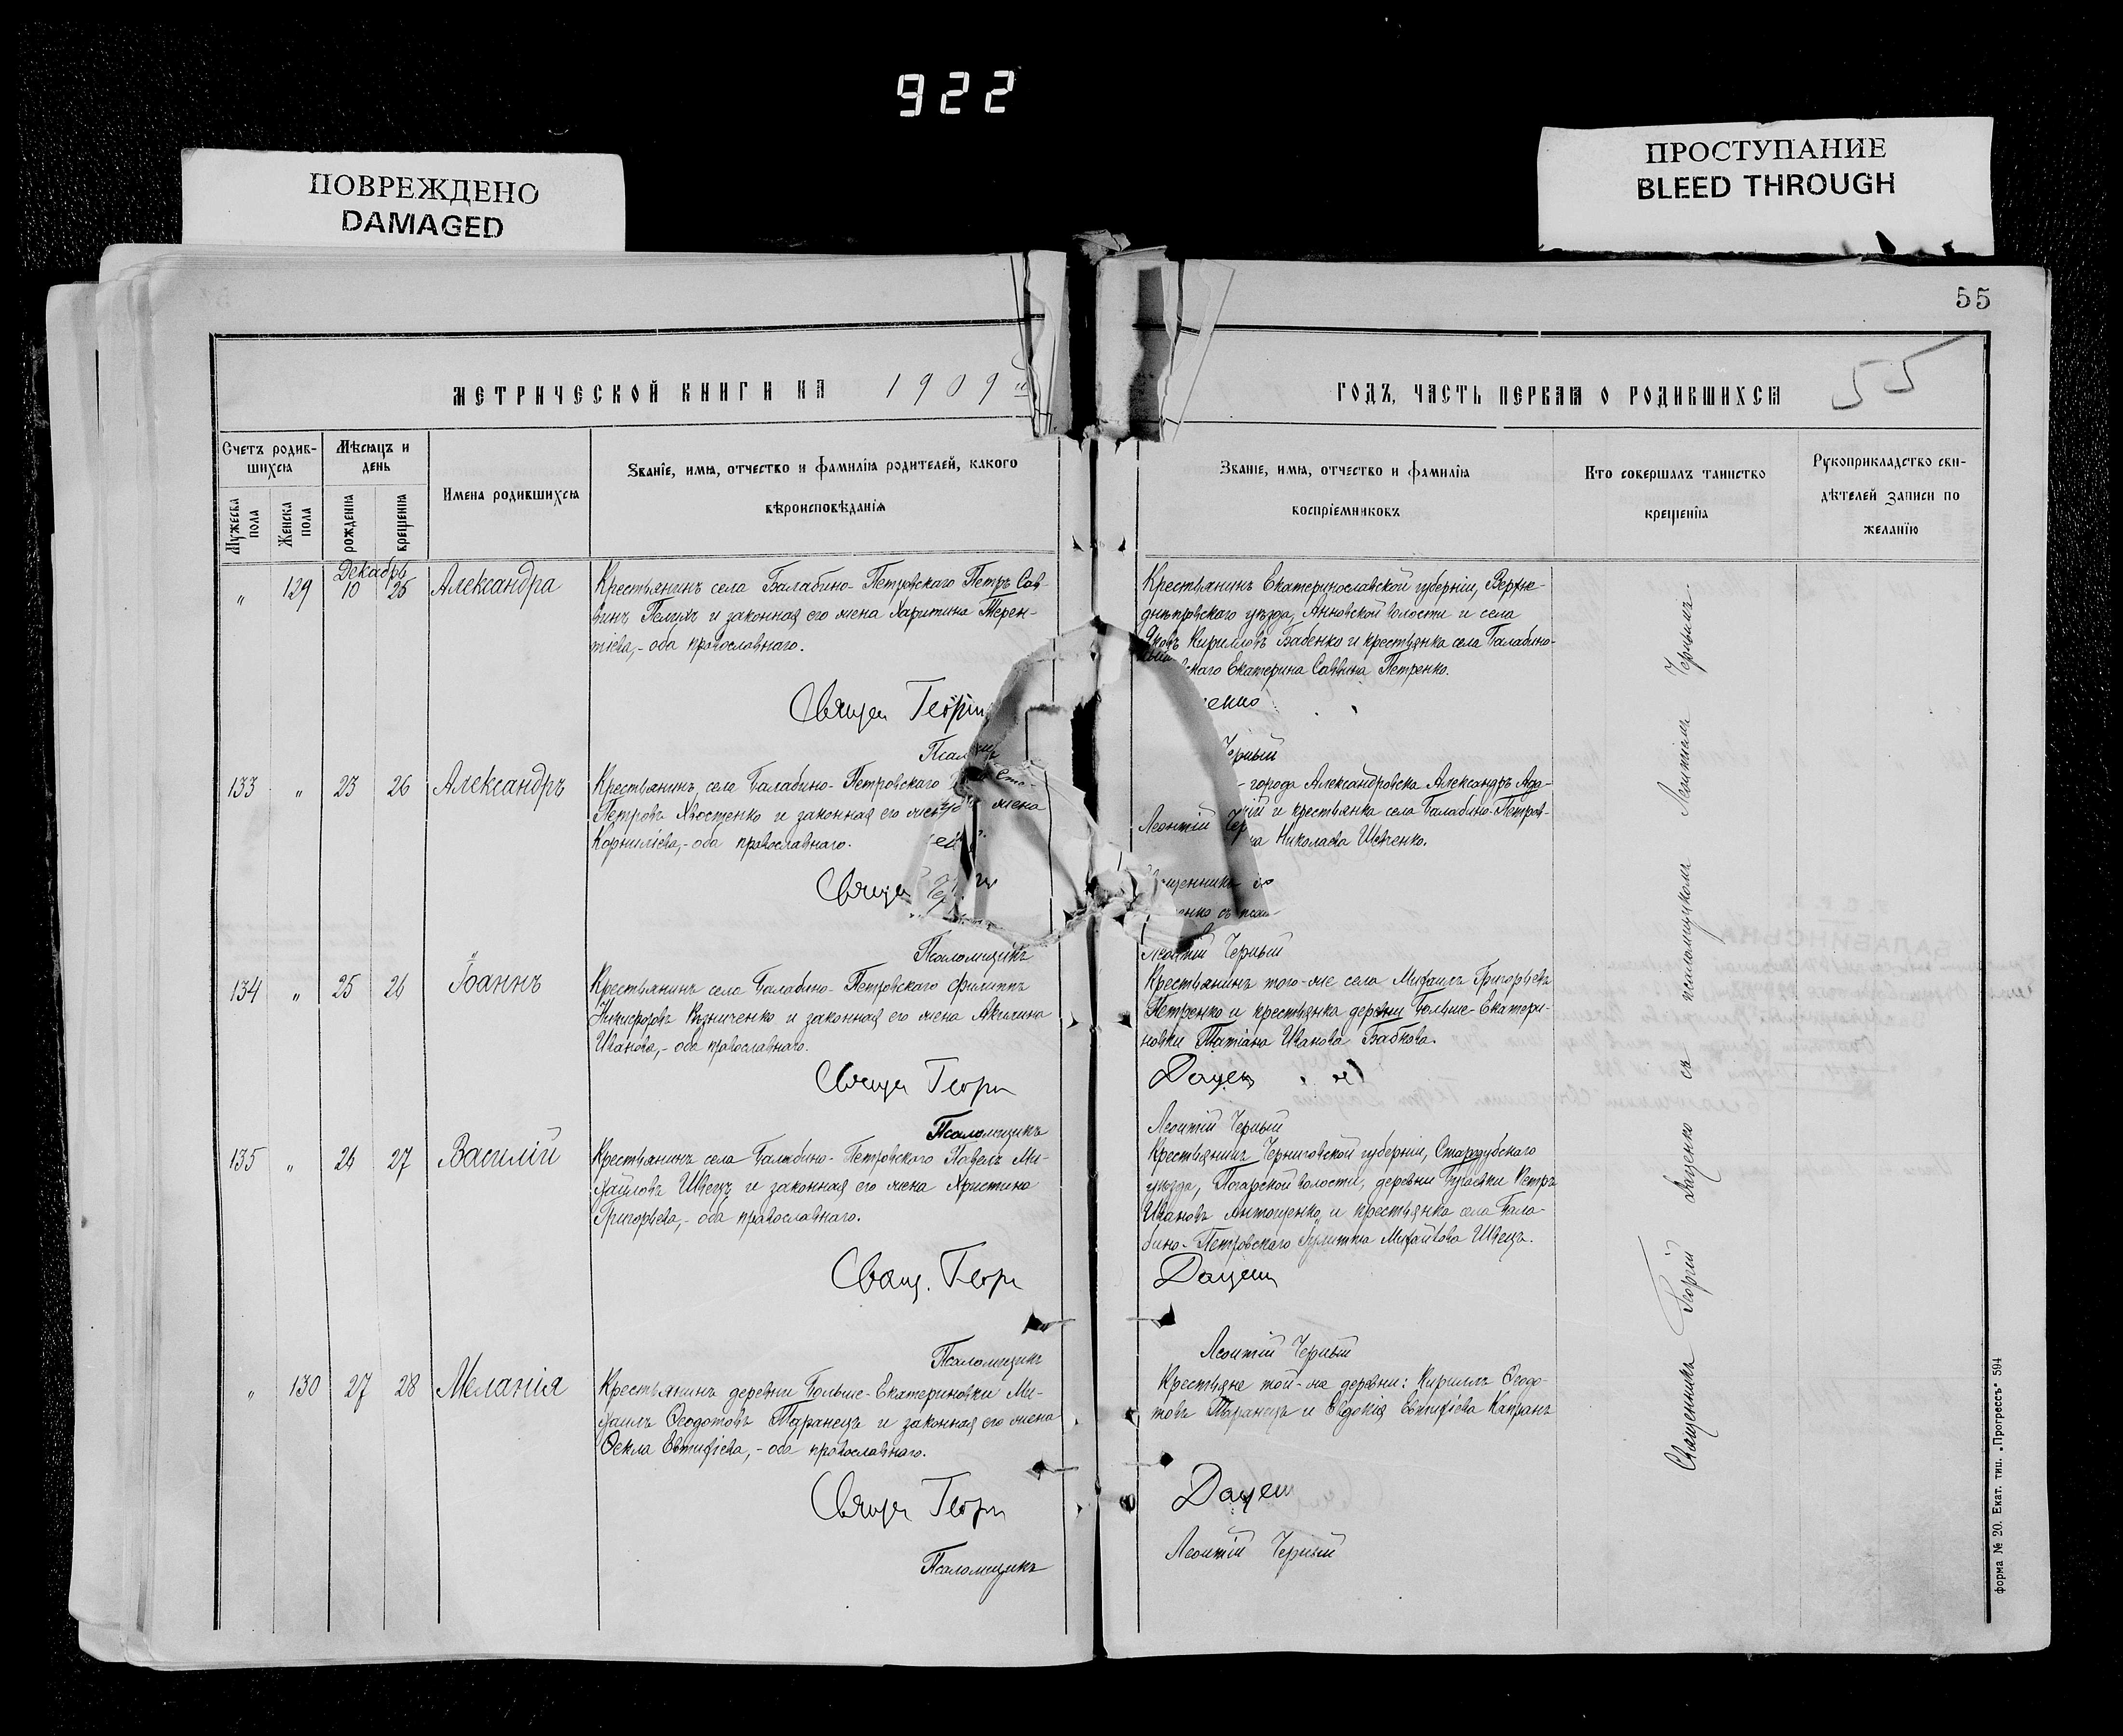 922
ПОВРЕЖДЕНО
DAMAGED
ПРОСТУПАНИЕ
BLEED THROUGH
55
МЕТРИЧЕСКОЙ КНИГИ НА 1909
ГОДЪ, ЧАСТЬ ПЕРВАЯ О РОДИВШИХСЯ
55
Счетъ родив-
шихся
Мѣсяцъ и
день
Имена родившихся
Званіе, имя, отчество и фамилія родителей, какого
вѣроисповѣданія
Мужеска пола
Женска пола
рожденія
крещенія
Званіе, имя, отчество и фамилія
воспріемниковъ
Кто совершалъ таинство
крещенія
Рукоприкладство сви-
дѣтелей записи по
желанію
Декабрь
" 129 10 25 Александра
Крестьянинъ села Балабино-Петровскаго Петръ Сав-
винъ Пелихъ и законная его жена Харитина Терен-
тіева,- оба православнаго.
Священ Георгій
Псалом
Крестьянинъ Екатеринославской губерніи, Верхне-
днѣпровскаго уѣзда, Анновской волости и села
Яковъ Кирилловъ Бабенко и крестьянка села Балабино-
скаго Екатерина Саввина Петренко.
енко
Черный
133 " 23 26 Александръ
Крестьянинъ села Балабино-Петровскаго
Петровъ Хвостенко и законная его жена
Корниліева,- оба православнаго.
Священ
Псаломщикъ
города Александровска Александръ Ада-
ій и крестьянка села Балабино-Петров-
на Николаева Шевченко.
Леонтій
Леонтій Черный
134 " 25 26 Іоаннъ
Крестьянинъ села Балабино-Петровскаго Филиппъ
Никифоровъ Кузниченко и законная его жена Акилина
Иванова,- оба православнаго.
Священ Георг
Псаломщикъ
Крестьянинъ того-же села Михаилъ Григорьевъ
Петренко и крестьянка деревни Больше-Екатери-
новки Татіана Иванова Бабкова.
Дацен
Леонтій Черный
135 " 26 27 Василій
Крестьянинъ села Балабино-Петровскаго Павелъ Ми-
хайловъ Швецъ и законная его жена Христина
Григорьева,- оба православнаго.
Свящ. Георг
Псаломщикъ
Крестьянинъ Черниговской губерніи, Стародубскаго
уѣзда, Погарской волости, деревни Бугаевки Петръ
Ивановъ Антощенко и крестьянка села Бала-
бино-Петровскаго Іулитта Михайлова Швецъ.
Дацен
Леонтій Черный
" 130 27 28 Меланія
Крестьянинъ деревни Больше-Екатериновки Ми-
хаилъ Ѳеодотовъ Таранецъ и законная его жена
Ѳекла Евтихіева,- оба православнаго.
Священ Георг
Псаломщикъ
Крестьяне той-же деревни: Кириллъ Ѳеодо-
товъ Таранецъ и Евдокія Евтихіева Капранъ
Дацен
Леонтій Черный
Священникъ Георгій Даценко съ псаломщикомъ Леонтіемъ Чернымъ.
форма № 20. Екат. тип. „Прогрессъ" 594